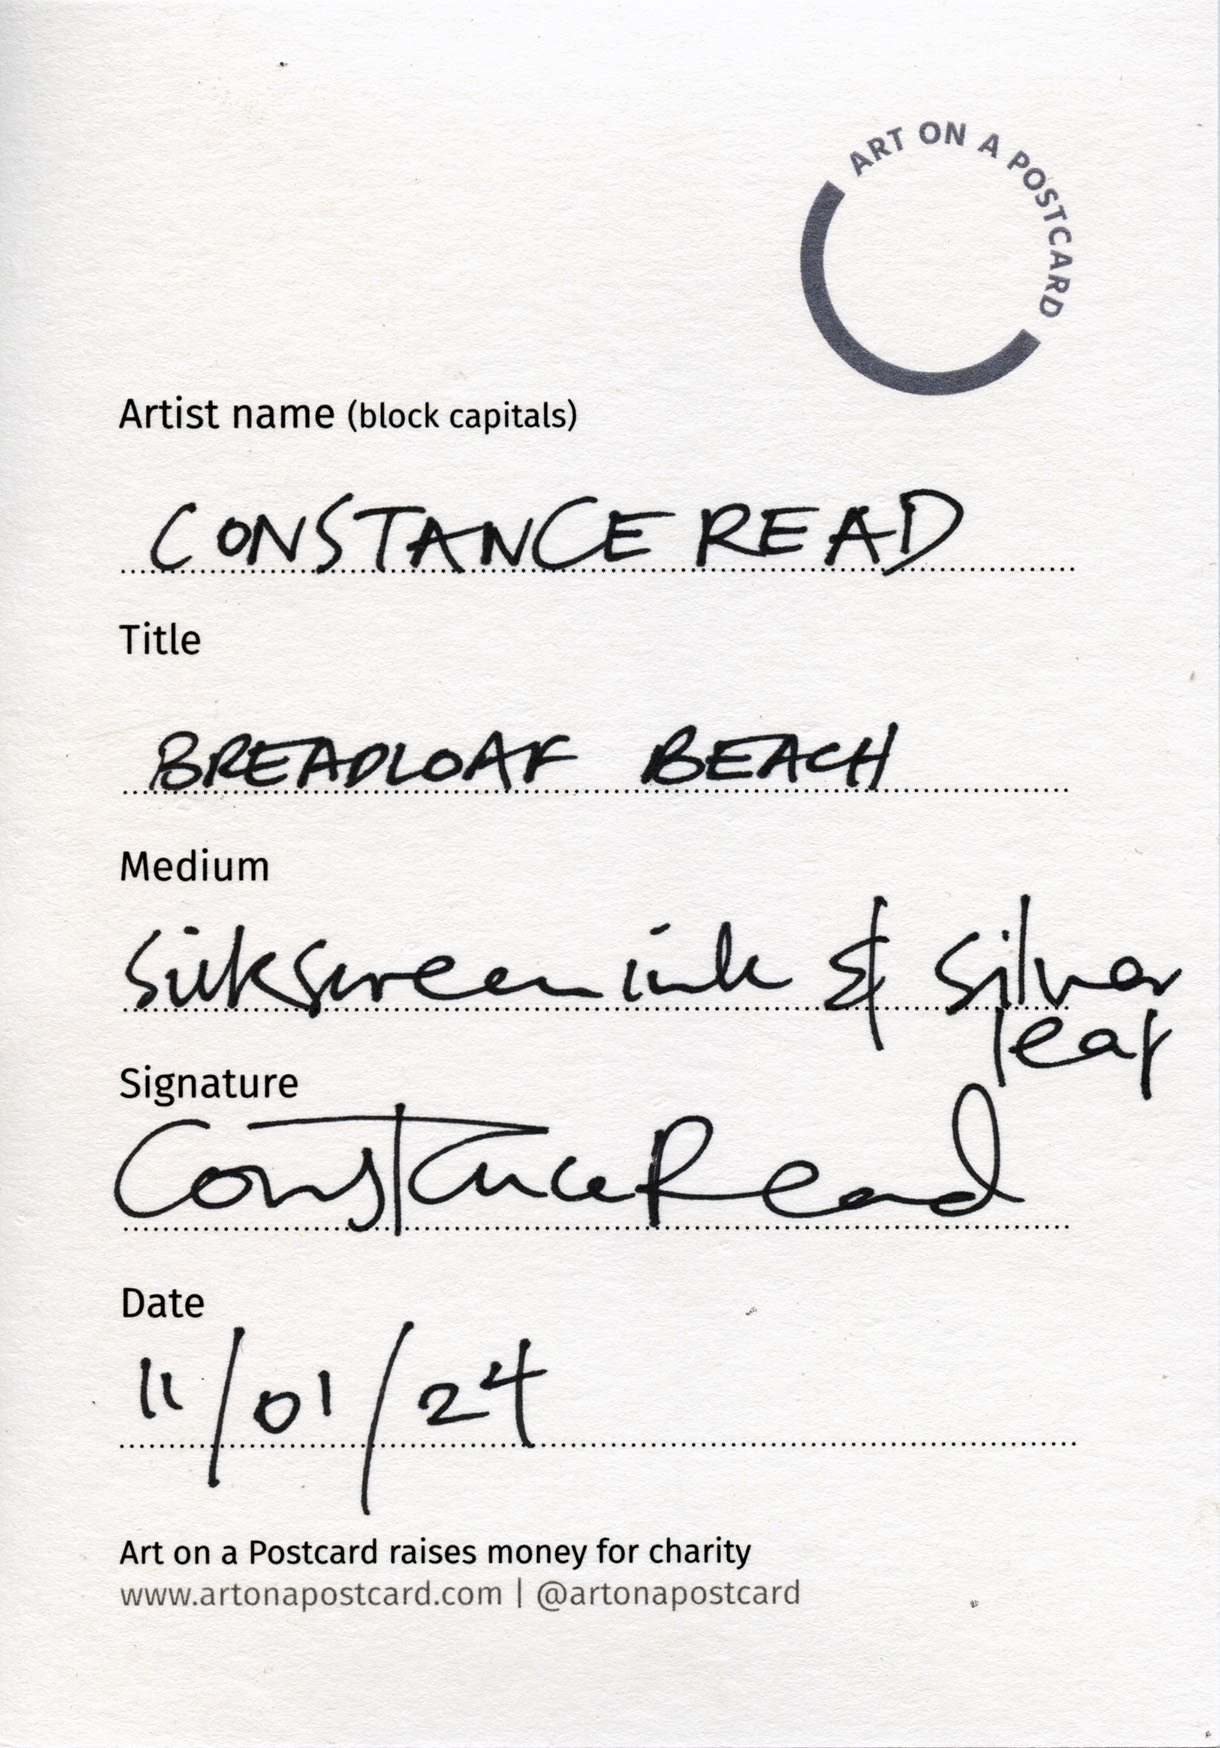 ART ON A POSTCARD
Artist name (block capitals)
CONSTANCE READ
Title
BREADLOAF BEACH
Medium
Silkscreen ink & Silver
leaf
Signature
Constance Read
Date
11/01/24
Art on a Postcard raises money for charity
www.artonapostcard.com | @artonapostcard